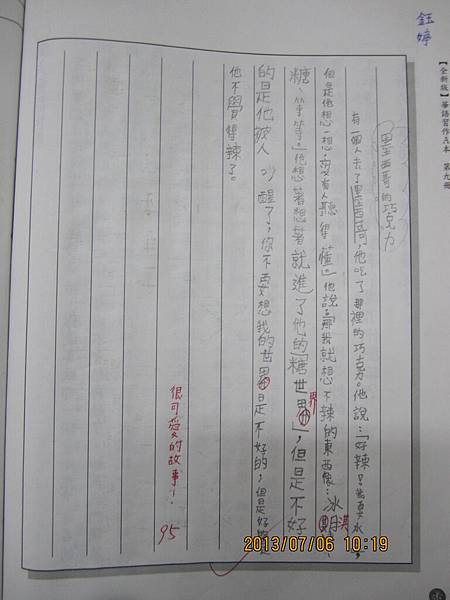 鈺婷
【全新版】華語習作A本 第九冊
墨西哥的巧克力
有一個人去了墨西哥,他吃了那裡的巧克力。他說:「好辣!我要水,
但是他想一想,要有人聽得懂」他說,「那我就想不辣的東西像:冰淇、
糖、等等。」他想著想著就進了他的「糖世界」,但是不好
的是他被人吵醒了,你不要想我的世界是不好的,但是好的是
他不覺得辣了。
很可愛的故事!
95
2013/07/06 10:19